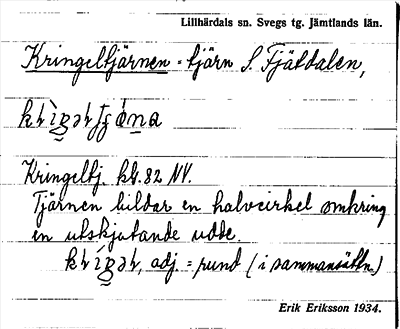 Lillhärdals sn. Svegs tg. Jämtlands län.
Kringeltjärnen = tjärn S. Fjätdalen,
Kringeltj. kbl. 82 NV.
Tjärnen bildar en halvcirkel omkring
en utskjutande udde.
adj. = rund (i sammansättn.)
Erik Eriksson 1934.